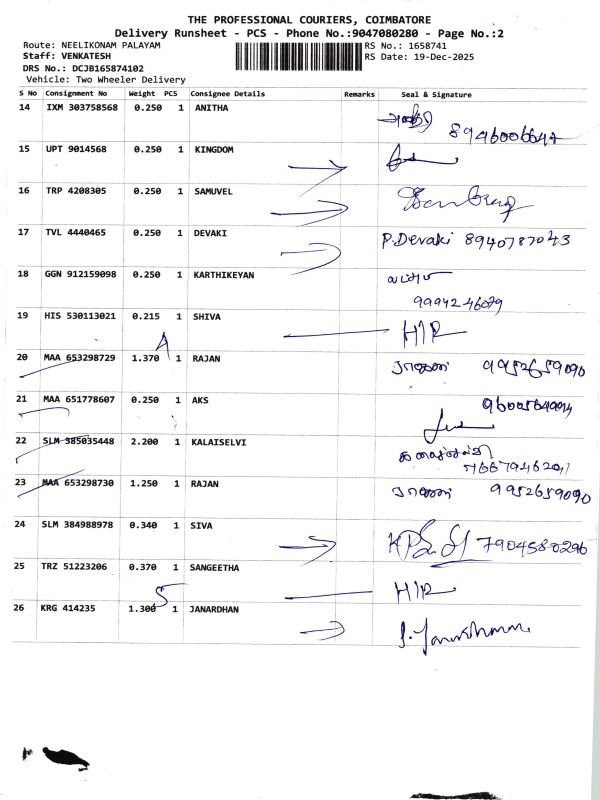 THE PROFESSIONAL COURIERS, COIMBATORE
Delivery Runsheet - PCS - Phone No.:9047080280 - Page No.:2
Route: NEELIKONAM PALAYAM RS No.: 1658741
Staff: VENKATESH RS Date: 19-Dec-2025
DRS No.: DCJB165874102
Vehicle: Two Wheeler Delivery
S No Consignment No Weight PCS Consignee Details Remarks Seal & Signature
14 IXM 303758568 0.250 1 ANITHA
8946006647
15 UPT 9014568 0.250 1 KINGDOM
16 TRP 4208305 0.250 1 SAMUVEL
17 TVL 4440465 0.250 1 DEVAKI P.Devaki 8940787043
18 GGN 912159098 0.250 1 KARTHIKEYAN
9994246079
19 HIS 530113021 0.215 1 SHIVA H/R
20 MAA 653298729 1.370 1 RAJAN ராஜன் 9952659090
21 MAA 651778607 0.250 1 AKS
22 SLM 385035448 2.200 1 KALAISELVI கலைச்செல்வி
23 MAA 653298730 1.250 1 RAJAN ராஜன் 9952659090
24 SLM 384988978 0.340 1 SIVA 7904580296
25 TRZ 51223206 0.370 1 SANGEETHA H/R
5
26 KRG 414235 1.300 1 JANARDHAN